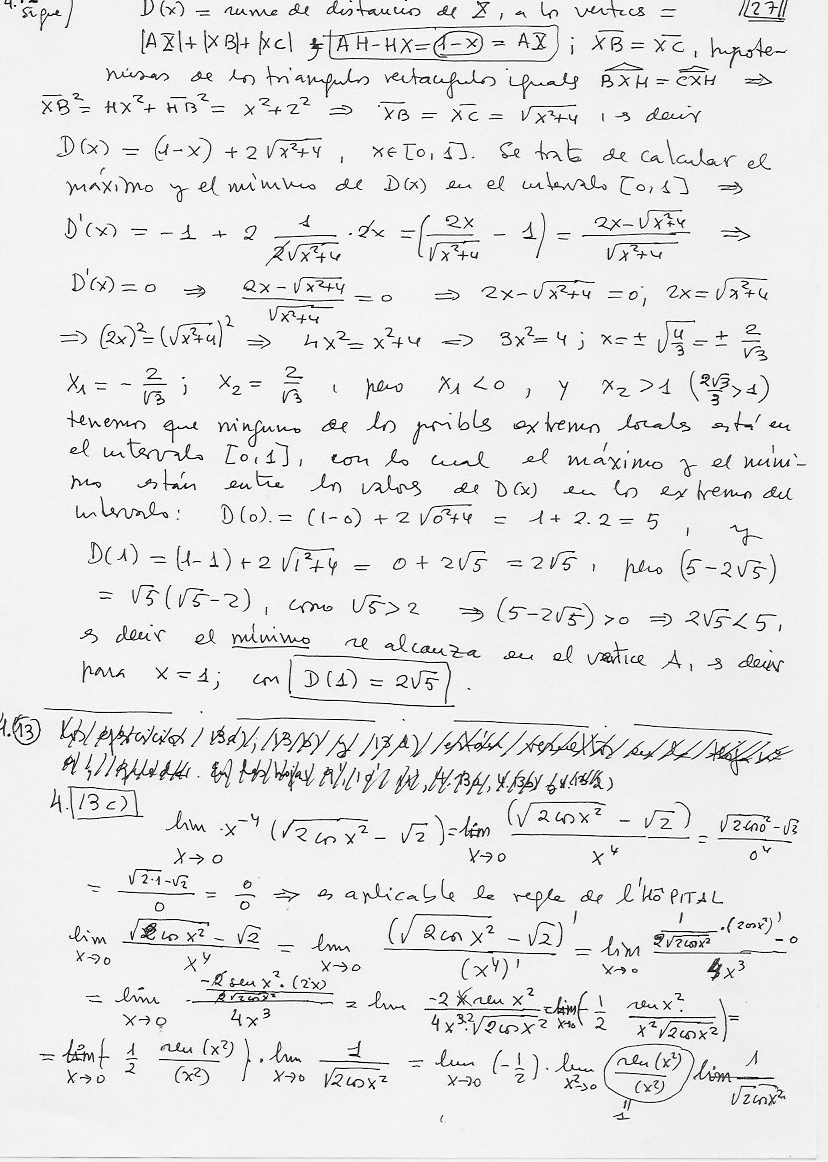 4.12 sigue) D(x) = suma de distancias de X, a los vertices = ||27||
|AX|+|XB|+|XC| y AH-HX=(1-x)=AX ; XB = XC, hipote-
nusas de los triangulos rectangulos iguals BXH = CXH ⇒
XB² = HX²+HB² = x²+2² ⇒ XB = XC = √(x²+4), es decir
D(x) = (1-x) + 2√(x²+4), x∈[0,1]. Se trata de calcular el
máximo y el mínimo de D(x) en el intervalo [0,1] ⇒
D'(x) = -1 + 2 1/(2√(x²+4)) · 2x = (2x/√(x²+4) - 1) = (2x-√(x²+4))/√(x²+4) ⇒
D'(x)=0 ⇒ (2x-√(x²+4))/√(x²+4) = 0 ⇒ 2x-√(x²+4) = 0; 2x=√(x²+4)
⇒ (2x)²=(√(x²+4))² ⇒ 4x²=x²+4 ⇒ 3x²=4; x=±√(4/3)=± 2/√3
x₁ = -2/√3; x₂ = 2/√3, pero x₁<0, y x₂>1 (2√3/3>1)
tenemos que ninguno de los posibles extremos locales está en
el intervalo [0,1], con lo cual el máximo y el míni-
mo están entre los valores de D(x) en los extremos del
intervalo: D(0) = (1-0) + 2√(0²+4) = 1+2.2 = 5, y
D(1) = (1-1)+2√(1²+4) = 0+2√5 = 2√5, pero (5-2√5)
= √5(√5-2), como √5>2 ⇒ (5-2√5)>0 ⇒ 2√5<5,
es decir el mínimo se alcanza en el vertice A, es decir
para x=1; con D(1) = 2√5.
4.13
4. 13c)
lim x⁻⁴(√(2cosx²) - √2) = lim (√(2cosx²) - √2)/x⁴ = (√(2cos0²)-√2)/0⁴
x→0 x→0
= (√(2·1)-√2)/0 = 0/0 ⇒ es aplicable la regla de l'HÔPITAL
lim (√(2cosx²)-√2)/x⁴ = lim (√(2cosx²)-√2)'/(x⁴)' = lim (1/(2√(2cosx²))·(2cosx²)'-0)/4x³
x→0 x→0 x→0
= lim (-2senx²·(2x)/(2√(2cosx²)))/4x³ = lim -2x senx²/(4x³·2√(2cosx²)) = lim(-1/2 senx²/(x²√(2cosx²))) =
x→0 x→0
= lim(-1/2 sen(x²)/(x²))·lim 1/√(2cosx²) = lim(-1/2)·lim (sen(x²)/(x²)) lim 1/√(2cosx²)
x→0 x→0 x→0 x²→0
1